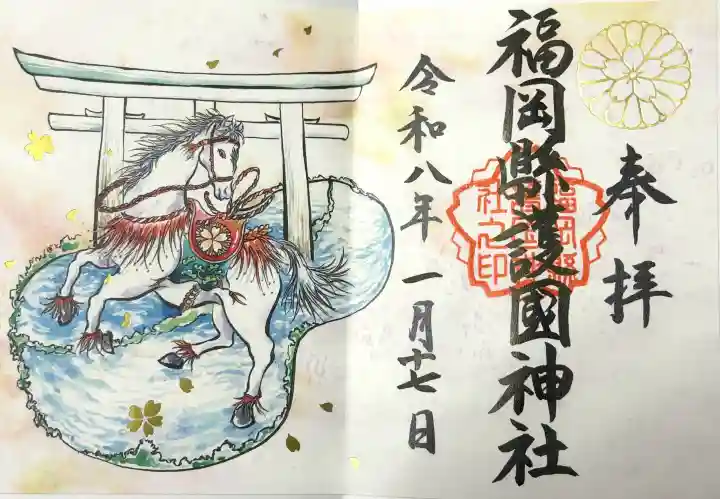 奉拝
福岡縣護國神社
福岡縣護國神社之印
令和八年一月十七日